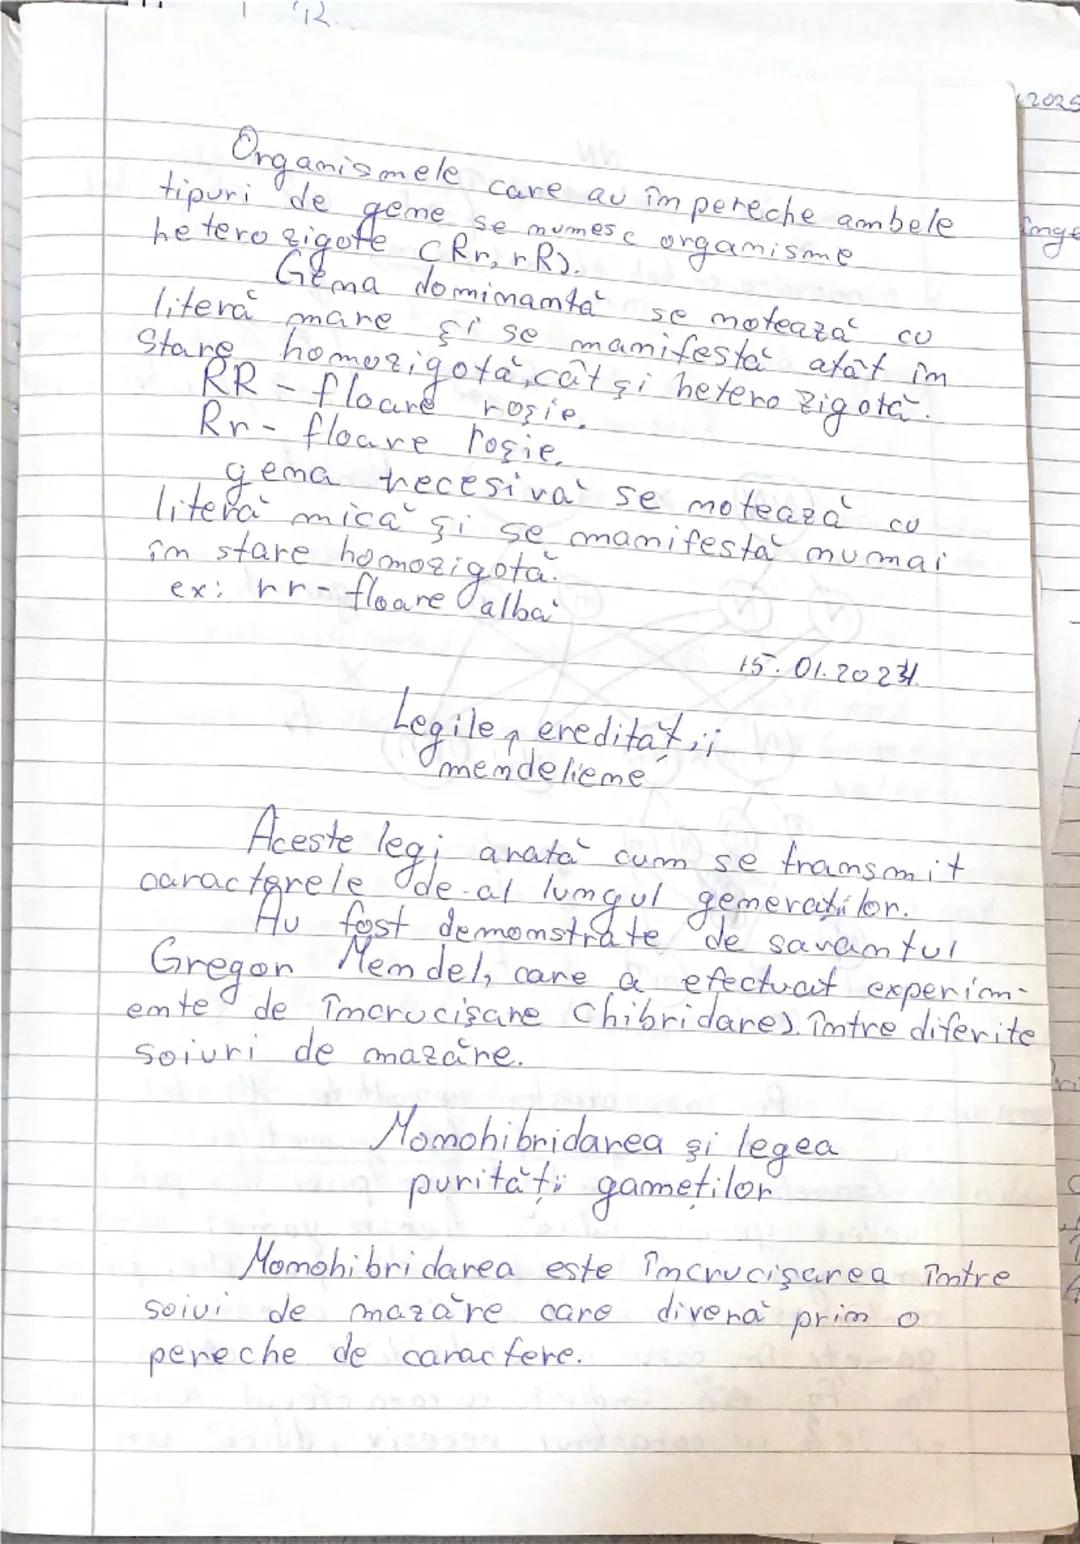 12.
2025
Organismele care au în pereche ambele
tipuri de gene se numesc organisme
heterozigote (Rr, rR).
Gena dominantă se notează cu
literă mare și se manifestă atât în
stare homozigotă, cât și heterozigotă.
RR - floare roșie.
Rr - floare roșie.
gena recesivă se notează cu
literă mică și se manifestă numai
în stare homozigotă.
ex: rr - floare albă
15.01.202
Legile eredității
mendeliene
Aceste legi arată cum se transmit
caracterele de-al lungul generațiilor.
Au fost demonstrate de savantul
Gregor Mendel, care a efectuat experim-
ente de încrucișare (hibridare) între diferite
soiuri de mazăre.
Monohibridarea și legea
purității gameților
Monohibridarea este încrucișarea între
soiui de mazăre care diveră prin o
pereche de caractere.